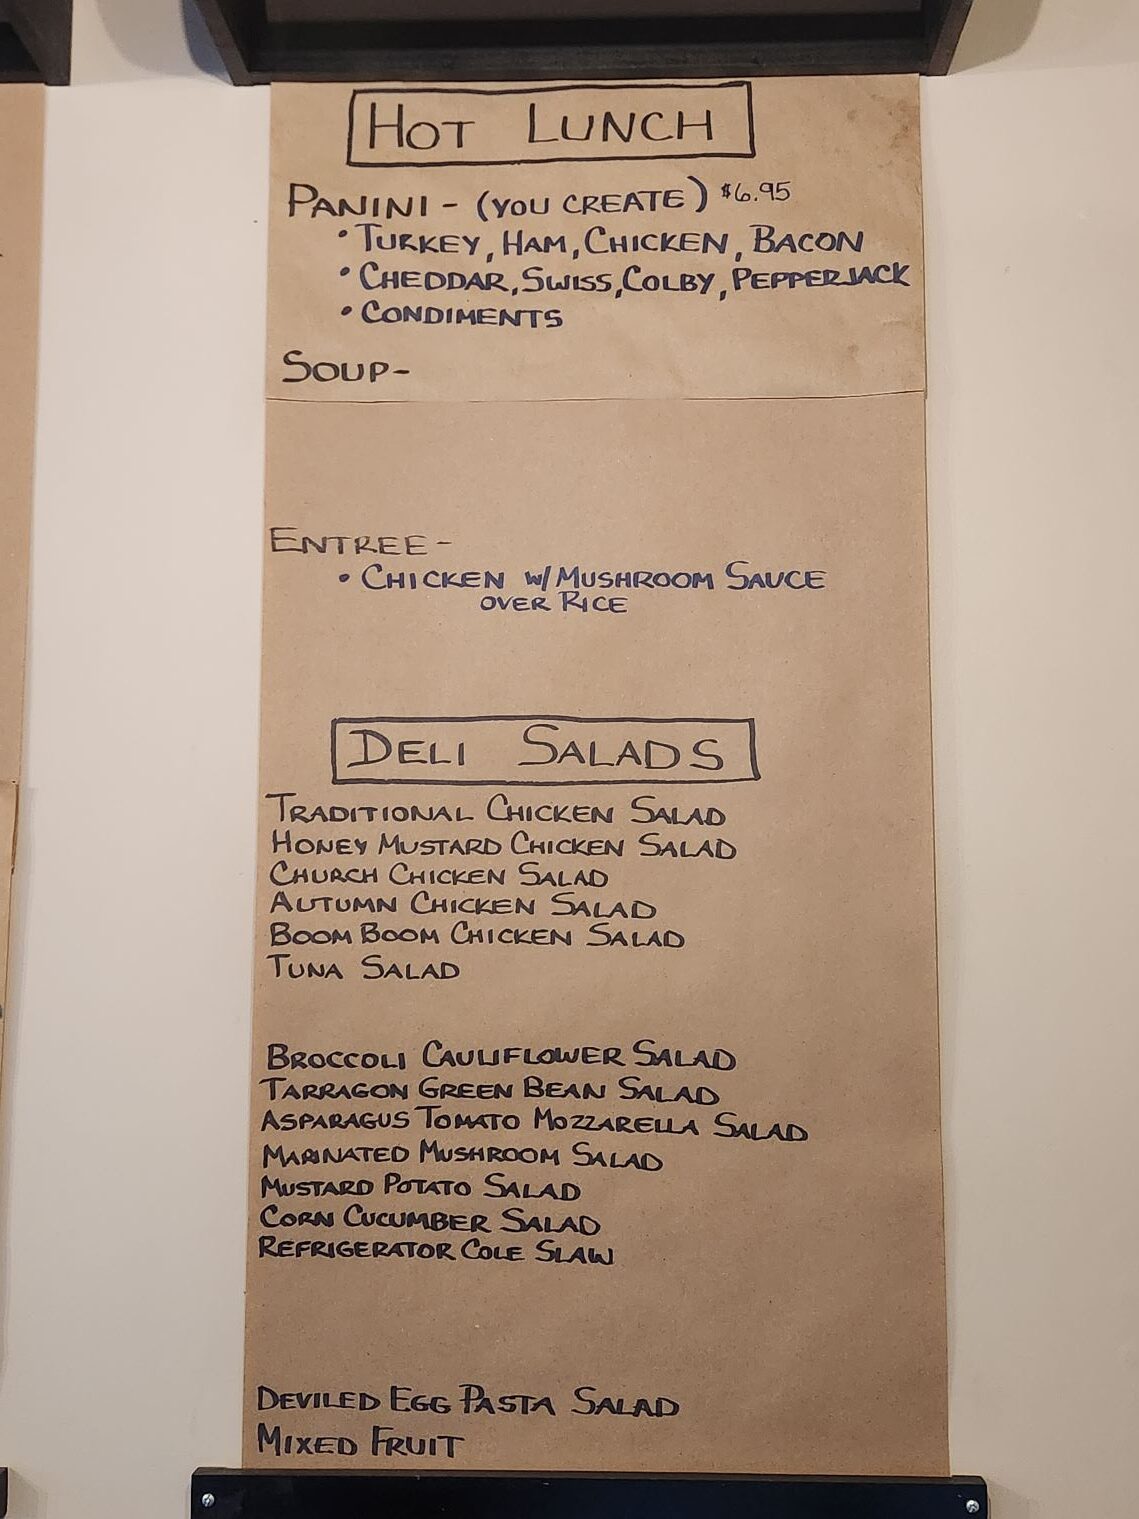 HOT LUNCH
PANINI - (YOU CREATE) $6.95
• TURKEY, HAM, CHICKEN, BACON
• CHEDDAR, SWISS, COLBY, PEPPERJACK
• CONDIMENTS
SOUP-
ENTREE-
• CHICKEN W/ MUSHROOM SAUCE
OVER RICE
DELI SALADS
TRADITIONAL CHICKEN SALAD
HONEY MUSTARD CHICKEN SALAD
CHURCH CHICKEN SALAD
AUTUMN CHICKEN SALAD
BOOM BOOM CHICKEN SALAD
TUNA SALAD
BROCCOLI CAULIFLOWER SALAD
TARRAGON GREEN BEAN SALAD
ASPARAGUS TOMATO MOZZARELLA SALAD
MARINATED MUSHROOM SALAD
MUSTARD POTATO SALAD
CORN CUCUMBER SALAD
REFRIGERATOR COLE SLAW
DEVILED EGG PASTA SALAD
MIXED FRUIT